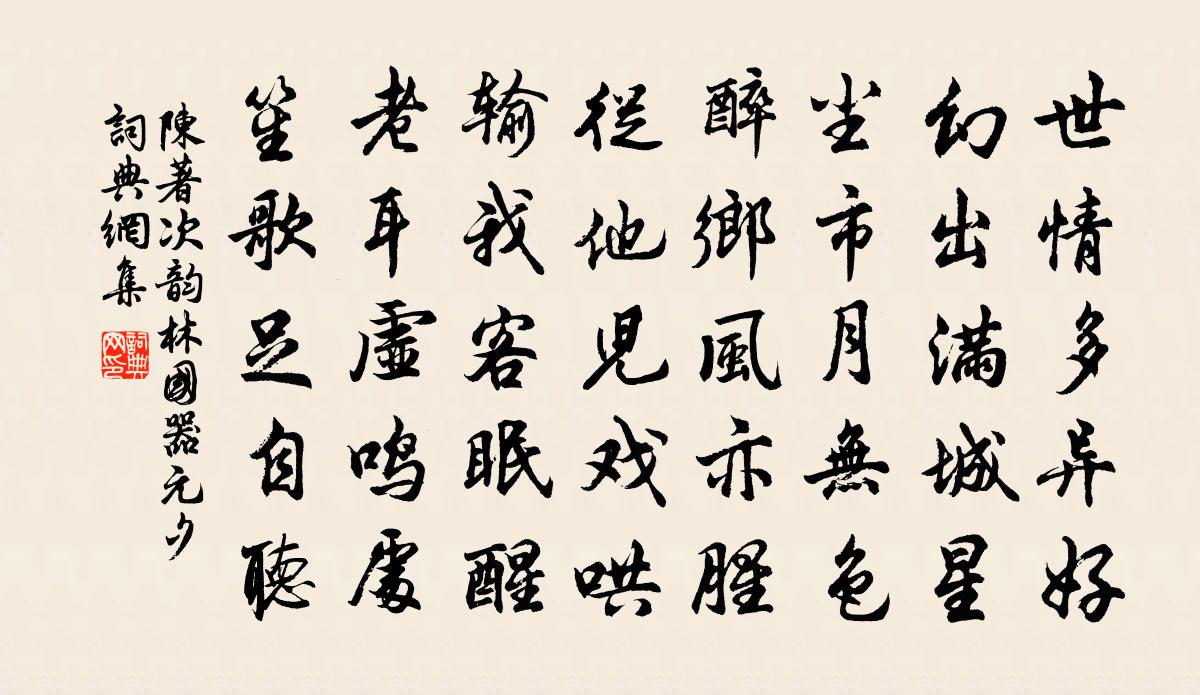 世情多异好
幻出滿城星
尘市月無色
醉鄉風亦腥
從他児戏哄
输我客眠醒
老耳虛鸣處
笙歌足自聽
陳著次韵林國器元夕
詞典網集
詞典
网印